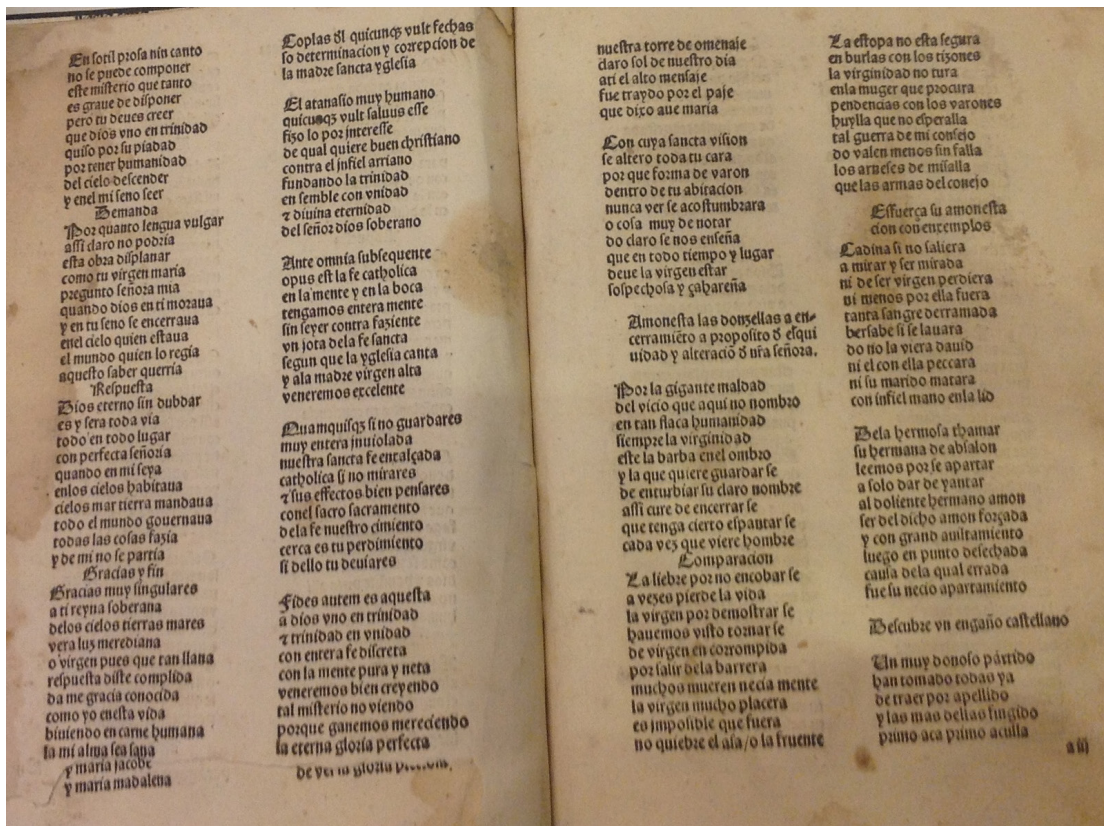 En sotil prosa nin canto
no se puede componer
este misterio que tanto
es graue de disponer
pero tu deues creer
que dios vno en trinidad
quiso por su piadad
por tener humanidad
del cielo descender
y enel mi seno seer
Demanda
Por quanto lengua vulgar
assi claro no podria
esta obra displanar
como tu virgen maria
pregunto señora mia
quando dios en ti moraua
y en tu seno se encerraua
enel cielo quien estaua
el mundo quien lo regia
aquesto saber querria
Respuesta
Dios eterno sin dubdar
es y sera toda via
todo en todo lugar
con perfecta señoria
quando en mi seya
enlos cielos habitaua
cielos mar tierra mandaua
todo el mundo gouernaua
todas las cosas fazia
y de mi no se partia
Gracias y fin
Gracias muy singulares
a ti reyna soberana
delos cielos tierras mares
vera luz merediana
o virgen pues que tan llana
respuesta diste complida
da me gracia conocida
como yo enesta vida
biuiendo en carne humana
la mi alma sea sana
y maria jacobe
y maria madalena
Coplas ðl quicunqꝫ vult fechas
so determinacion y correpcion de
la madre sancta yglesia
El atanasio muy humano
quicunqꝫ vult saluus esse
fizo lo por jnteresse
de qual quiere buen christiano
contra el infiel arriano
fundando la trinidad
en semble con vnidad
⁊ diuina eternidad
del señor dios soberano
Ante omnia subsequente
opus est la fe catholica
en la mente y en la boca
tengamos entera mente
sin seyer contra faziente
vn jota dela fe sancta
segun que la yglesia canta
y ala madre virgen alta
veneremos excelente
Quamquisqꝫ si no guardares
muy entera inuiolada
nuestra sancta fe ensalçada
catholica si no mirares
⁊ sus effectos bien pensares
conel sacro sacramento
dela fe nuestro cimiento
cerca es tu perdimiento
si dello tu deuiares
Fides autem es aquesta
a dios vno en trinidad
⁊ trinidad en vnidad
con entera fe discreta
con la mente pura y neta
veneremos bien creyendo
tal misterio no viendo
porque ganemos mereciendo
la eterna gloria perfecta
nuestra torre de omenaje
claro sol de nuestro dia
ati el alto mensaje
fue traydo por el paje
que dixo aue maria
Con cuya sancta vision
se altero toda tu cara
por que forma de varon
dentro de tu abitacion
nunca ver se acostumbrara
o cosa muy de notar
do claro se nos enseña
que en todo tiempo y lugar
deue la virgen estar
sospechosa y çahareña
Amonesta las donzellas a en-
cerramiẽto a proposito ð esqui
uidad y alteraciõ ð nřa señora.
Por la gigante maldad
del vicio que aqui no nombro
en tan flaca humanidad
siempre la virginidad
este la barba enel ombro
y la que quiere guardar se
de enturbiar su claro nombre
assi cure de encerrar se
que tenga cierto espantar se
cada vez que viere hombre
Comparacion
La liebre por no encobar se
a vezes pierde la vida
la virgen por demostrar se
hauemos visto tornar se
de virgen en corrompida
por salir dela barrera
muchos mueren necia mente
la virgen mucho placera
es imposible que fuera
no quiebre el asa/o la fruente
La estopa no esta segura
en burlas con los tizones
la virginidad no tura
enla muger que procura
pendencias con los varones
huylla que no esperalla
tal guerra de mi consejo
do valen menos sin falla
los arneses de misalla
que las armas del conejo
Effuerça su amonesta
cion con entemplos
Cadina si no saliera
a mirar y ser mirada
ni de ser virgen perdiera
ni menos por ella fuera
tanta sangre derramada
bersabe si se lauara
do no la viera dauid
ni el con ella peccara
ni su marido matara
con infiel mano enla lid
Dela hermosa thamar
su hermana de absalon
leemos por se apartar
a solo dar de yantar
al doliente hermano amon
ser del dicho amon forçada
y con grand auiltamiento
luego en punto desechada
causa dela qual errada
fue su necio apartamiento
Descubre vn engaño castellano
Un muy donoso partido
han tomado todas ya
de traer por apellido
y las mas dellas fingido
primo aca primo aculla
a iij